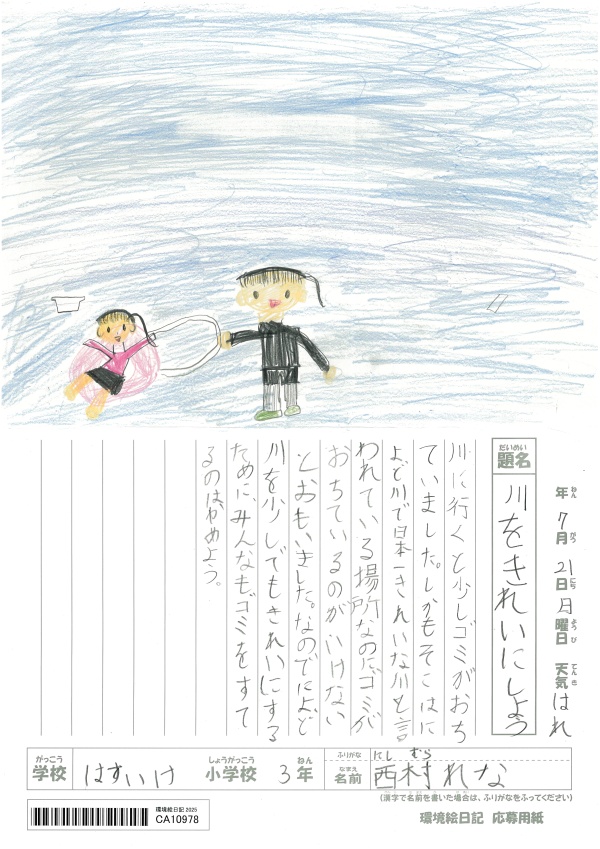 年 7月 21日 日曜日 天気 はれ
ねん がつ にち ようび てんき
だいめい
題名 川をきれいにしよう
川に行くと少しゴミがおち
ていました。しかもそこはに
よど川で日本一きれいな川と言
われている場所なのにゴミが
おちているのがいけない
とおもいきした。なのでによど
川を少しでもきれいにする
ために、みんなもゴミをすて
るのは、やめよう。
がっこう しょうがっこう ねん
学校 はすいけ 小学校 3年
ふりがな にしむら
なまえ
名前 西村れな
(漢字で名前を書いた場合は、ふりがなをふってください)
環境絵日記 2025
CA10978
環境絵日記 応募用紙